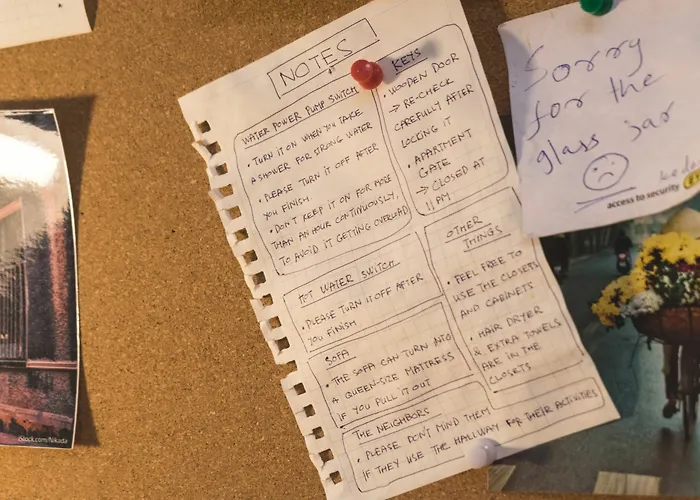 NOTES
WATER POWER PUMP SWITCH
• TURN IT ON WHEN YOU TAKE
A SHOWER FOR STRONG WATER
• PLEASE TURN IT OFF AFTER
YOU FINISH
• DON'T KEEP IT ON FOR MORE
THAN AN HOUR CONTINUOUSLY,
TO AVOID IT GETTING OVERLOAD
KEYS
• WOODEN DOOR
→ RE-CHECK
CAREFULLY AFTER
LOCKING IT
• APARTMENT
GATE
→ CLOSED AT
11 PM
HOT WATER SWITCH
• PLEASE TURN IT OFF AFTER
YOU FINISH
SOFA
• THE SOFA CAN TURN INTO
A QUEEN-SIZE MATTRESS
IF YOU PULL IT OUT
OTHER
THINGS
• FEEL FREE TO
USE THE CLOSETS
AND CABINETS
• HAIR DRYER
& EXTRA TOWELS
ARE IN THE
CLOSETS
THE NEIGHBORS
• PLEASE DON'T MIND THEM
IF THEY USE THE HALLWAY FOR THEIR ACTIVITIES
Sorry
for the
glass jar
access to security
iStock.com/Nikada